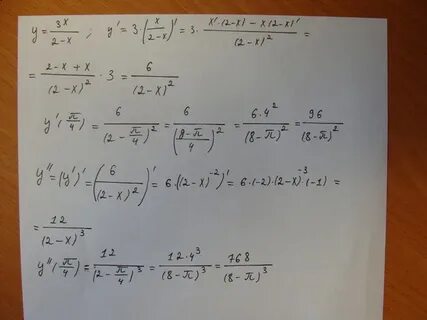 y = \frac{3x}{2-x} ; y' = 3 \cdot \left(\frac{x}{2-x}\right)' = 3 \cdot \frac{x' \cdot (2-x) - x(2-x)'}{(2-x)^2} =
= \frac{2-x+x}{(2-x)^2} \cdot 3 = \frac{6}{(2-x)^2}
y'(\frac{π}{4}) = \frac{6}{(2-\frac{π}{4})^2} = \frac{6}{(\frac{8-π}{4})^2} = \frac{6 \cdot 4^2}{(8-π)^2} = \frac{96}{(8-π)^2}
y'' = (y')' = \left(\frac{6}{(2-x)^2}\right)' = 6 \cdot ((2-x)^{-2})' = 6 \cdot (-2) \cdot (2-x)^{-3} \cdot (-1) =
= \frac{12}{(2-x)^3}
y''(\frac{π}{4}) = \frac{12}{(2-\frac{π}{4})^3} = \frac{12 \cdot 4^3}{(8-π)^3} = \frac{768}{(8-π)^3}